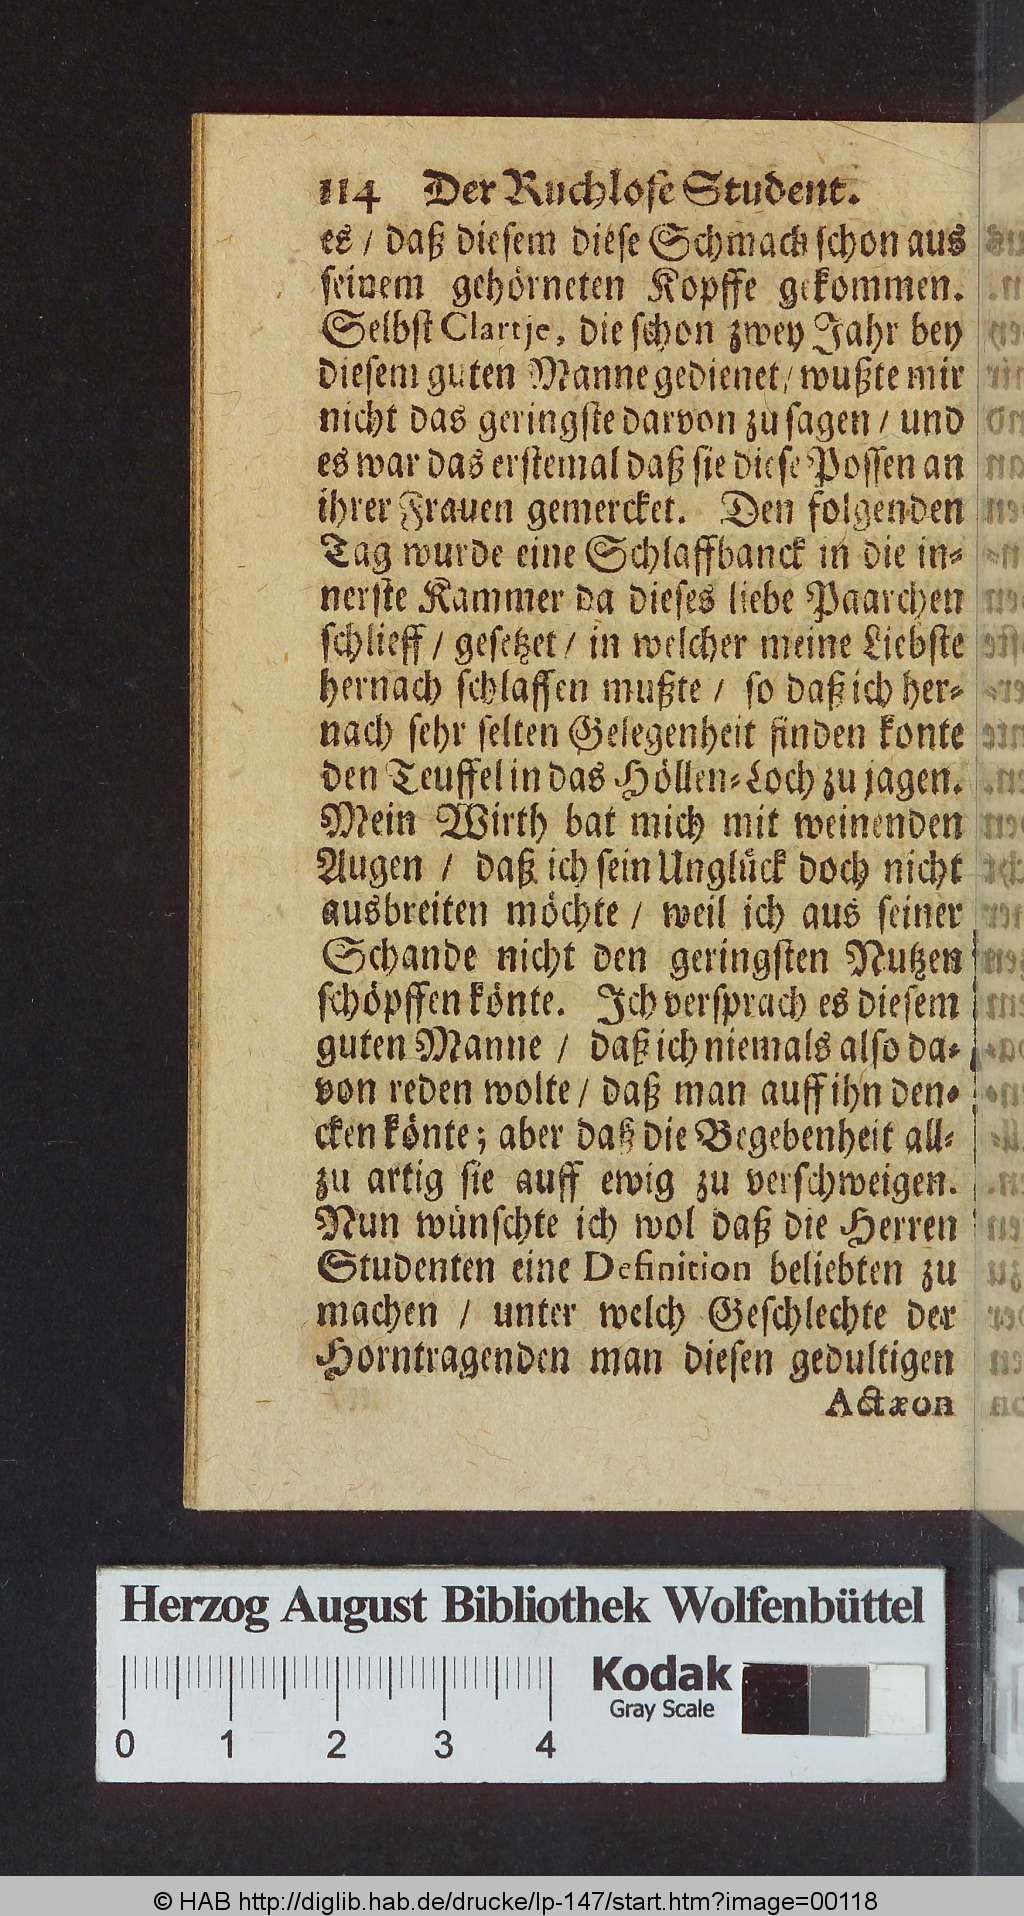 114 Der Ruchlose Student.
es / daß diesem diese Schmach schon aus
seinem gehörneten Kopffe gekommen.
Selbst Clartje, die schon zwey Jahr bey
diesem guten Manne gedienet / wußte mir
nicht das geringste darvon zu sagen / und
es war das erstemal daß sie diese Possen an
ihrer Frauen gemercket. Den folgenden
Tag wurde eine Schlaffbanck in die in-
nerste Kammer da dieses liebe Paarchen
schlieff / gesetzet / in welcher meine Liebste
hernach schlaffen mußte / so daß ich her-
nach sehr selten Gelegenheit finden konte
den Teuffel in das Höllen-Loch zu jagen.
Mein Wirth bat mich mit weinenden
Augen / daß ich sein Unglück doch nicht
ausbreiten möchte / weil ich aus seiner
Schande nicht den geringsten Nutzen
schöpffen könte. Ich versprach es diesem
guten Manne / daß ich niemals also da-
von reden wolte / daß man auff ihn den-
cken könte; aber daß die Begebenheit all-
zu artig sie auff ewig zu verschweigen.
Nun wünschte ich wol daß die Herren
Studenten eine Definition beliebten zu
machen / unter welch Geschlechte der
Horntragenden man diesen gedultigen
Actæon
Herzog August Bibliothek Wolfenbüttel
Kodak
Gray Scale
0 1 2 3 4
© HAB http://diglib.hab.de/drucke/lp-147/start.htm?image=00118